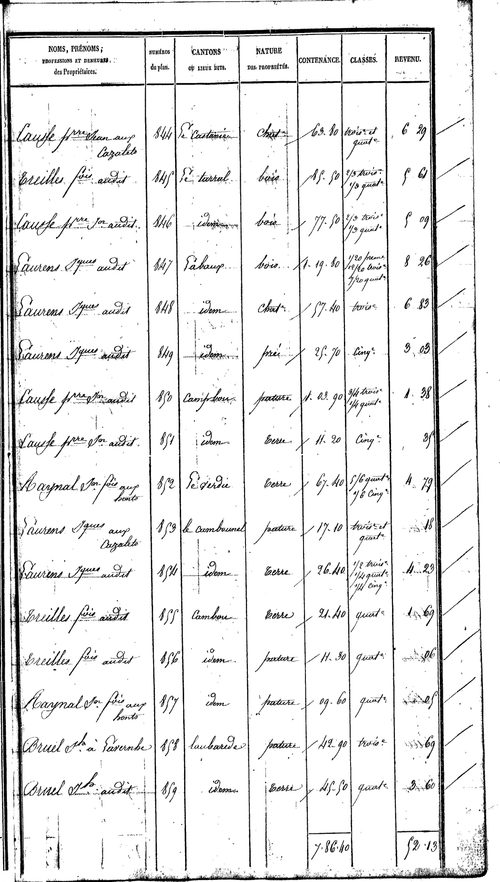 NOMS, PRÉNOMS; NUMÉROS CANTONS NATURE CONTENANCE. CLASSES. REVENU.
PROFESSIONS ET DEMEURES du plan. OU LIEUX DITS. DES PROPRIÉTÉS.
des Propriétaires.
Causse pre Jean aux 844 Le Castanié chat 63. 80 trois et 6 29
Cazalets quat
Treilles fois audit 845 Le turrul bois 85. 50 2/3 trois 5 61
1/3 quat
Causse pre Jn audit 846 idem bois 77. 50 2/3 trois 5 09
1/3 quat
Laurens Jques audit 847 Labaux bois 1. 19. 80 8 26
Laurens Jques audit 848 idem chat 57. 40 trois 6 83
Laurens Jques audit 849 idem pré 25. 70 Cinq 3 03
Causse pre Jn audit 850 Cambou pature 1. 03. 90 3/4 trois 1 38
1/4 quat
Causse pre Jn audit 851 idem terre 11. 20 Cinq 35
Raynal Jn fois aux 852 Le verdié terre 67. 40 5/6 quat 4 79
honts 1/6 Cinq
Laurens Jques aux 853 le Cambounel pature 17. 10 trois et 18
Cazalets quat
Laurens Jques audit 854 idem terre 26. 40 1/2 trois 4 23
1/4 quat
1/4 Cinq
Treilles fois audit 855 Cambou terre 21. 40 quat 1 69
Treilles fois audit 856 idem pature 11. 30 quat 06
Raynal Jn fois aux 857 idem pature 09. 60 quat 05
honts
Bruel Jh à Lavernhe 858 laubarede pature 42. 90 trois 69
Bruel Jh audit 859 idem terre 45. 50 quat 3 60
7. 86. 40 52. 13